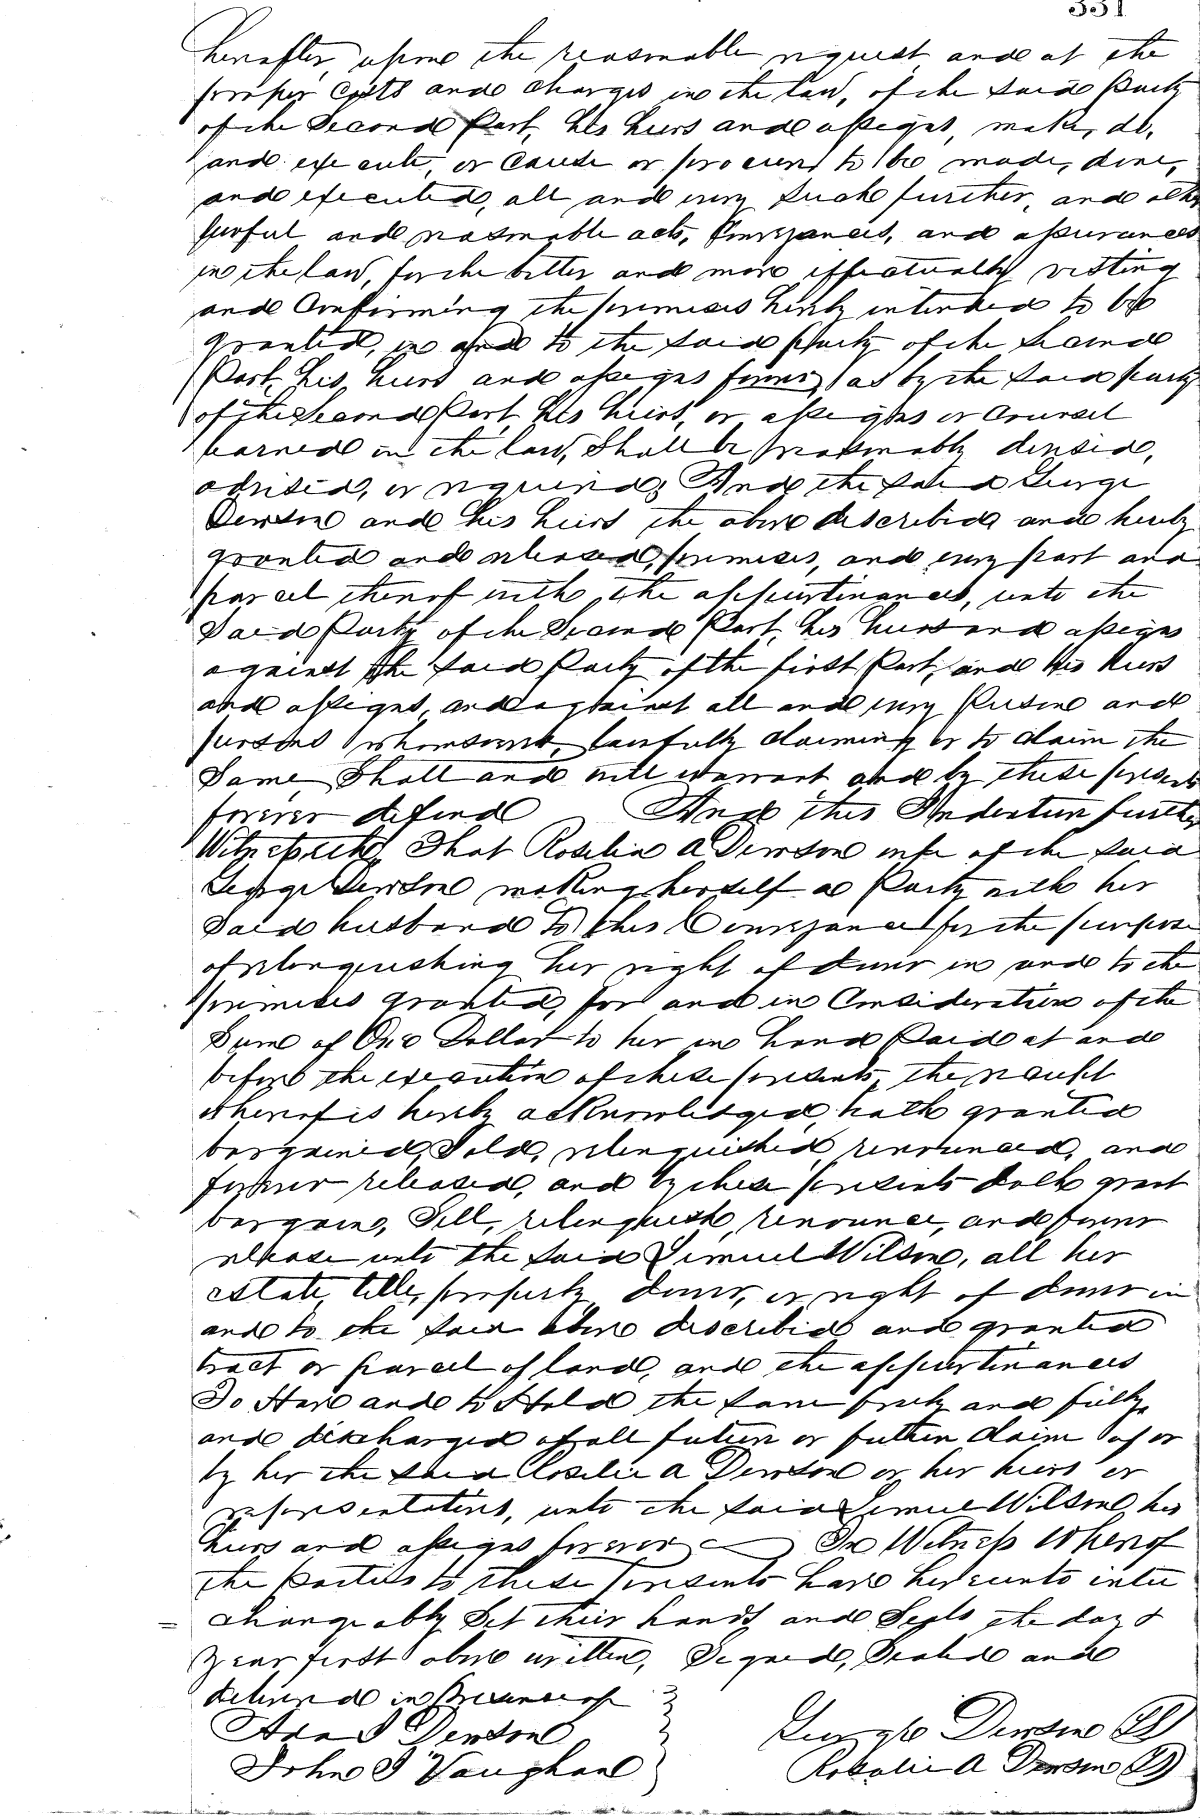 331
hereafter, upon the reasonable request and at the
proper costs and charges in the law, of the said Party
of the Second Part, his heirs and assigns, make, do,
and execute, or cause or procure to be made, done,
and executed, all and every such further, and other
lawful and reasonable acts, Conveyances, and assurances
in the law, for the better and more effectually vesting
and Confirming the premises hereby intended to be
granted, in and to the said party of the Second
Part, his heirs and assigns forever, as by the said party
of the Second Part, his heirs, or assigns or Counsel
learned in the law, Shall be reasonably devised,
advised, or required; And the said George
Dewson and his heirs the above described and hereby
granted and released, premises, and every part and
parcel thereof with the appurtinances, unto the
Said Party of the Second Part, his heirs and assigns
against the said Party of the first Part, and his heirs
and assigns, and against all and every Person and
persons whomsoever, lawfully claiming or to claim the
Same Shall and will warrant and by these presents
forever defend And this Indenture further
Witnesseth, That Roselia A Dewson wife of the said
George Dewson making herself a Party with her
Said husband to this Conveyance for the purpose
of relinquishing her right of dower in and to the
premises granted, for and in Consideration of the
Sum of One Dollar to her in hand Paid at and
before the execution of these presents, the receipt
whereof is hereby acknowledged, hath granted
bargained, Sold, relinquished, renounced, and
forever released, and by these presents doth grant
bargain, Sell, relinquish, renounce, and forever
release unto the said Lemuel Wilson, all her
estate, title, property, dower, or right of dower in
and to the said above described and granted
tract or parcel of land, and the appurtinances
To Have and to Hold the same freely and fully,
and discharged of all future or further claim of or
by her the said Roselia A Dewson or her heirs or
representatives, unto the said Lemuel Wilson his
heirs and assigns forever In Witness Whereof
the parties to these presents have hereunto inter
changeably Set their hands and Seals the day &
year first above written, Signed, Sealed and
delivered in Presence of
Ada I Dewson George Dewson LS
John I Vaughan Rosalie A Dewson LS